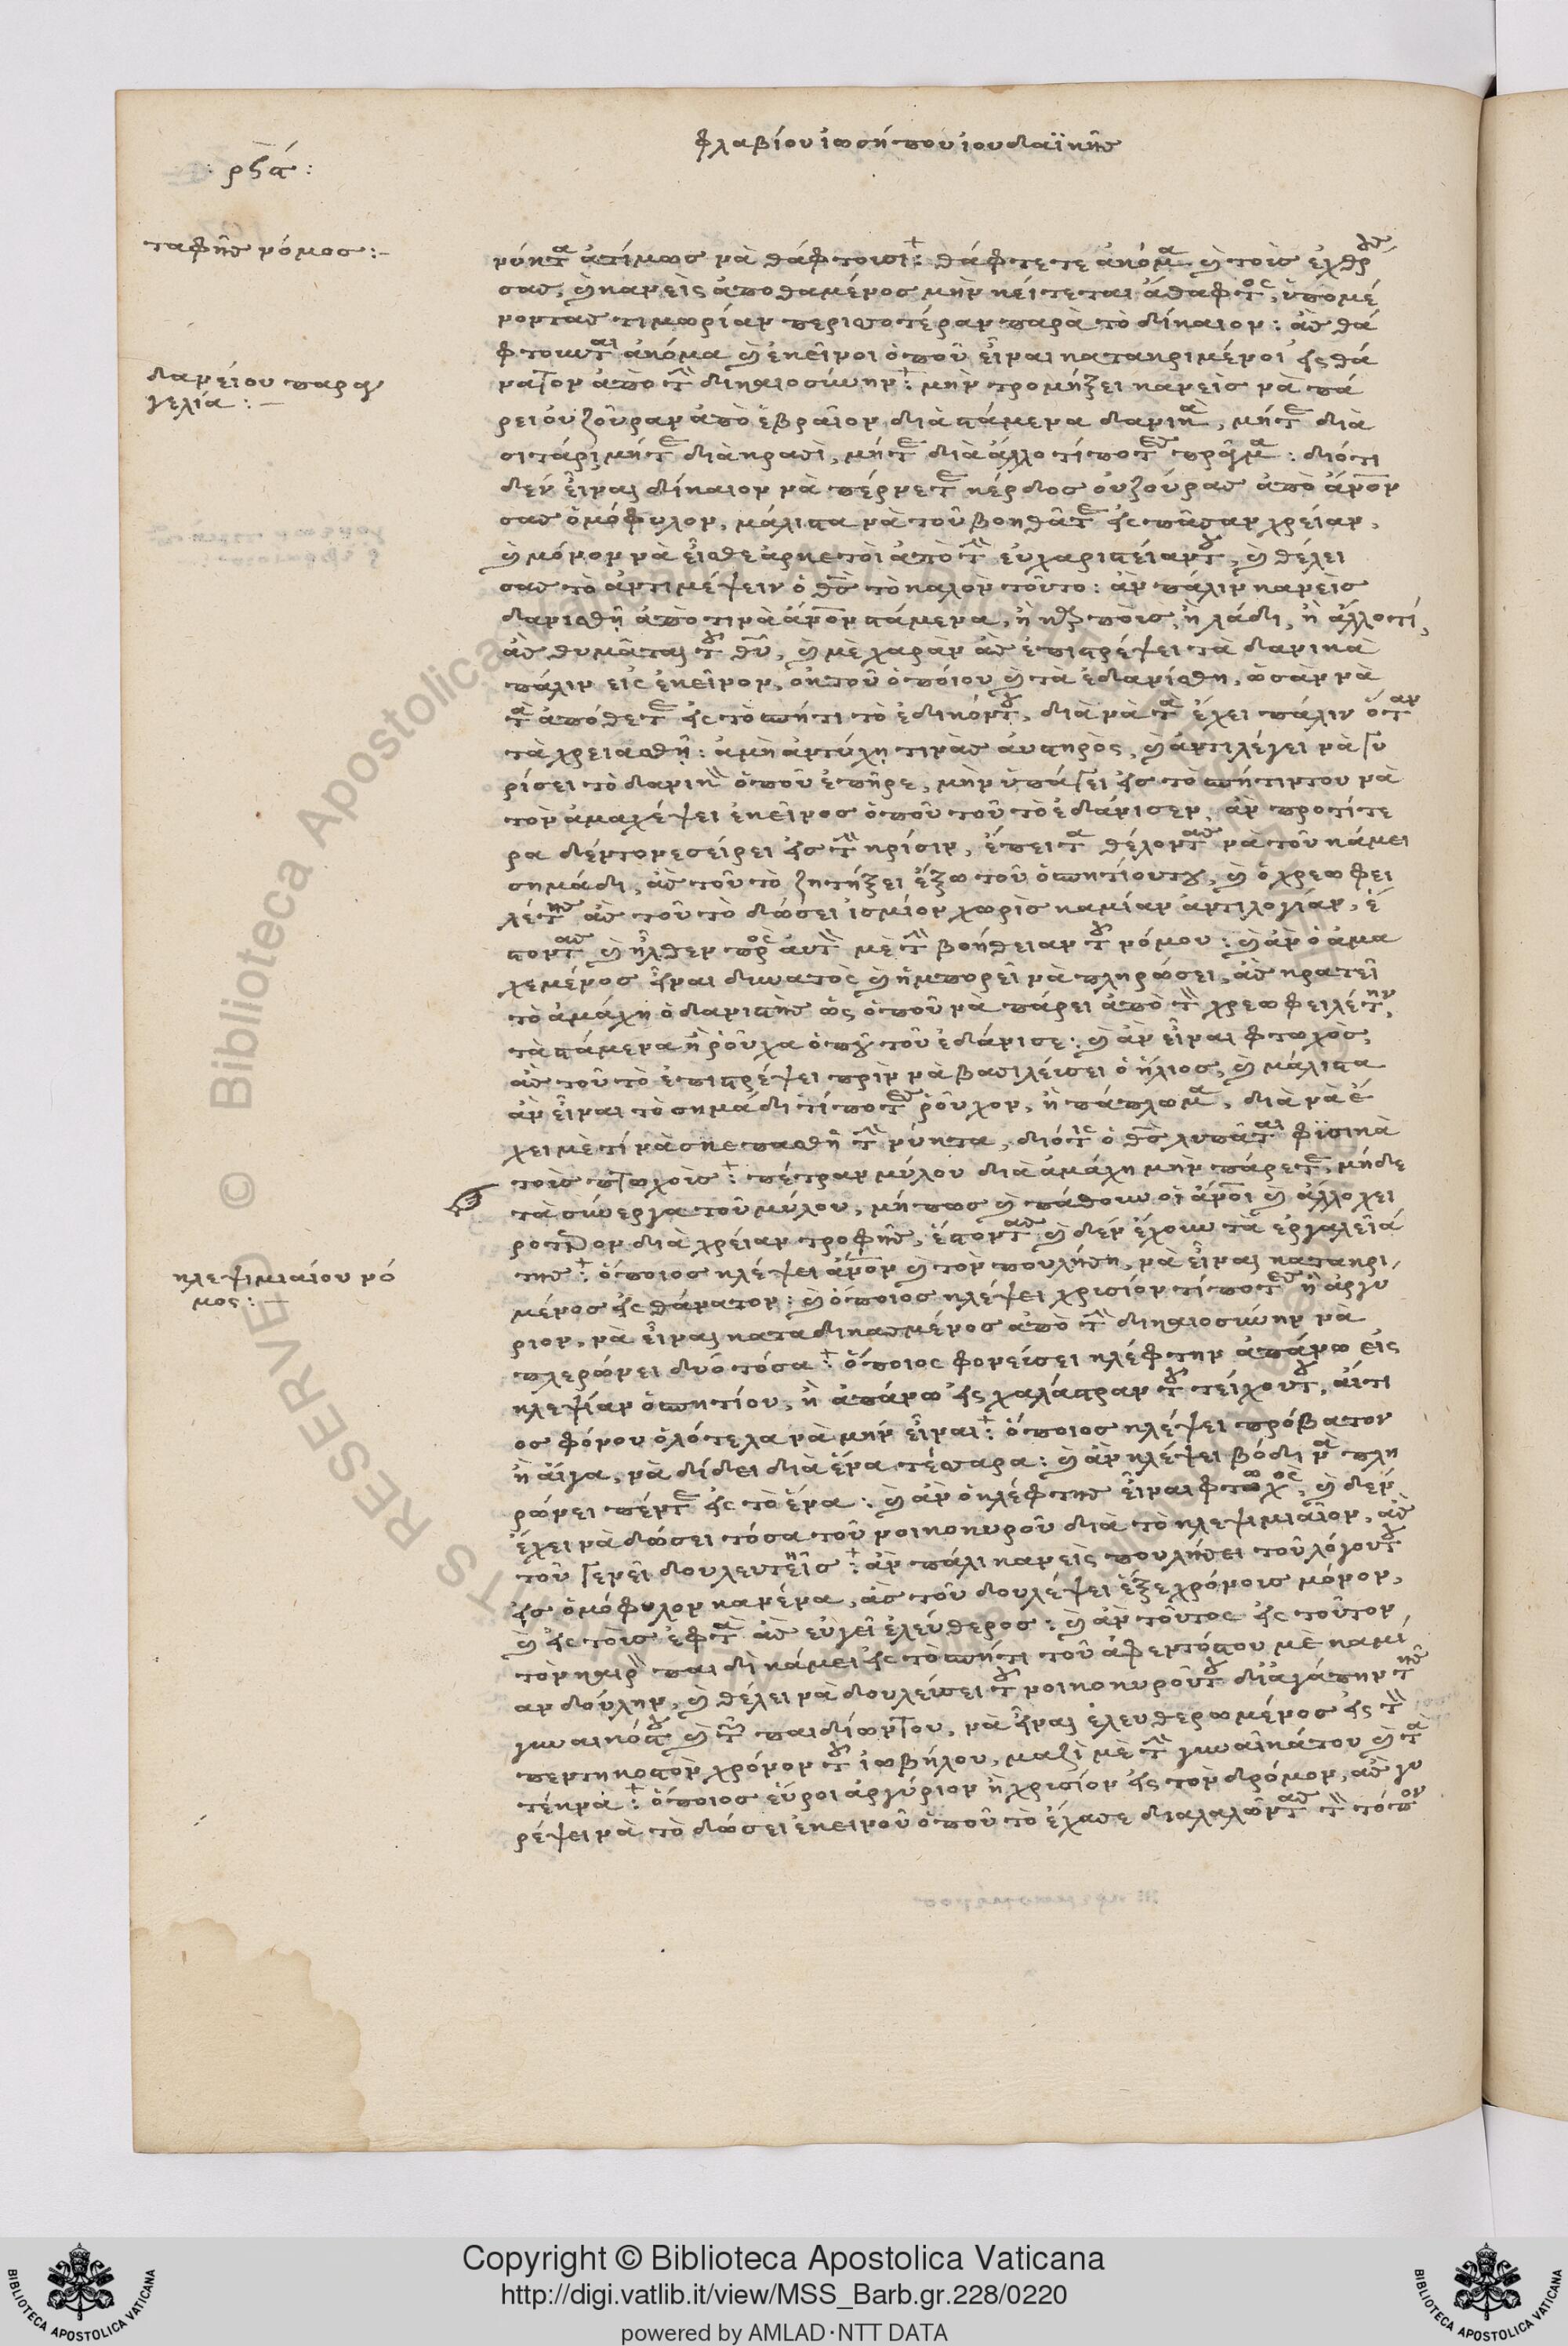 φλαβίου ἰωσήπου ἰουδαϊκῆς
: ρϟά :
ταφῆς νόμος :-
νύκτα ἀτίμως νὰ θάφτουσι : θάφτετε ἀκόμα καὶ τοὺς ἐχθρούς
σας, καὶ κανεὶς ἀποθαμένος μὴν κείτεται ἄθαφτος, ὑπομέ
νοντας τιμωρίαν περισσοτέραν παρὰ τὸ δίκαιον : ἂς θά
φτουνται ἀκόμα καὶ ἐκεῖνοι ὁποῦ εἶναι κατακριμένοι εἰς θά
δανείου παραγ
γελία :-
νατον ἀπὸ τὴν δικαιοσύνην : μὴν τρομήξει κανεὶς νὰ πά
ρει οὐζοῦραν ἀπὸ ἑβραῖον διὰ στάμενα δανικὰ, μήτε διὰ
σιτάρι μήτε διὰ κρασὶ, μήτε διὰ ἄλλο τίποτες πρᾶγμα : διότι
δὲν εἶναι δίκαιον νὰ πέρνετε κέρδος οὐζούρας ἀπὸ ἄνον
σας ὁμόφυλον, μάλιστα νὰ τοῦ βοηθᾶτε εἰς πᾶσαν χρείαν,
καὶ μόνον νὰ εἶσθε ἀρκετοὶ ἀπὸ τὴν εὐχαριστείαν του, καὶ θέλει
σας τὸ ἀντιμέψειν ὁ θς τὸ καλὸν τοῦτο : ἂν πάλιν κανεὶς
δανισθῆ ἀπὸ τινὰ ἄνον στάμενα, ἢ καρποὺς, ἢ λάδι, ἢ ἄλλο τί,
ἂς θυμᾶται τοῦ θῦ, καὶ μὲ χαρὰν ἂς ἐπιστρέψει τὰ δανικὰ
πάλιν εἰς ἐκεῖνον, ἐκ τοῦ ὁποίου καὶ τὰ ἐδανίσθη, ὡσὰν νὰ
τὰ ἀπόθετε εἰς τὸ σπήτι τὸ ἐδικόν του, διὰ νὰ τὰ ἔχει πάλιν ὅταν
τὰ χρειασθῆ : ἀμὴ ἂν τύχῃ τινὰς αὐστηρὸς, καὶ ἀντιλέγει νὰ γυ
ρίσει τὸ δανικὸν ὁποῦ ἐπῆρε, μὴν ὑπάγει εἰς τὸ σπήτιν του νὰ
τὸν ἀμαχέψει ἐκεῖνος ὁποῦ τοῦ τὸ ἐδάνισεν, ἂν προτίτε
ρα δὲν τον εσείρει εἰς τὴν κρίσιν, ἔπειτα θέλοντας νὰ τοῦ κάμει
σημάδι, ἂς τοῦ τὸ ζητήξει ἔξω τοῦ ὁσπητίου του, καὶ ὁ χρεωφει
λέτης ἂς τοῦ τὸ δώσει ἰσμίον χωρὶς καμίαν ἀντιλογίαν, ἔ
στοντας καὶ ἦλθεν πρὸς αὐτὸν μὲ τὴν βοήθειαν τοῦ νόμου : καὶ ἂν ὁ ἀμα
χεμένος εἶναι δυνατὸς καὶ ἡμπορεῖ νὰ πληρώσει, ἂς κρατεῖ
τὸ ἀμάχη ὁ δανιστὴς ὡς ὁποῦ νὰ πάρει ἀπὸ τὸν χρεωφειλέτην,
τὰ στάμενα ἢ ῥοῦχα ὁποῦ τοῦ ἐδάνισε : καὶ ἂν εἶναι φτωχὸς,
ἂς τοῦ τὸ ἐπιστρέψει πρὶν νὰ βασιλεύσει ὁ ἥλιος, καὶ μάλιστα
ἂν εἶναι τὸ σημάδι τίποτες ῥοῦχον, ἢ πάπλωμα, διὰ νὰ ἔ
χει μὲ τί νὰ σκεπασθῆ τὴν νύκτα, διότι ὁ θς λυπᾶται φυσικὰ
τοὺς πτωχοὺς : πέτραν μύλου διὰ ἀμάχη μὴν πάρετε, μήδε
τὰ σύνεργα τοῦ μύλου, μήπως καὶ πάθουν οἱ ἄνοι καὶ ἄλλο χει
ρότερον διὰ χρείαν τροφῆς, ἔστοντας καὶ δὲν ἔχουν τὰ ἐργαλεῖά
κλεψιμιαίου νό
μος :-
της : ὅποιος κλέψει ἄνον καὶ τὸν πουλήσῃ, νὰ εἶναι κατακρι
μένος εἰς θάνατον : καὶ ὅποιος κλέψει χρυσίον τίποτες ἢ ἀργύ
ριον, νὰ εἶναι καταδικασμένος ἀπὸ τὴν δικαιοσύνην νὰ
πλερώνει δυὸ τόσα : ὅποιος φονεύσει κλέφτην ἀπάνω εἰς
κλεψίαν ὁσπητίου, ἢ ἀπάνω εἰς χαλάστραν τοῦ τείχου του, αἴτι
ος φόνου ὁλότελα νὰ μὴν εἶναι : ὅποιος κλέψει πρόβατον
ἢ αἴγα, νὰ δίδει διὰ ἕνα τέσσαρα : καὶ ἂν κλέψει βόδι νὰ πλη
ρώνει πέντε εἰς τὸ ἕνα : καὶ ἂν ὁ κλέφτης εἶναι φτωχὸς, καὶ δὲν
ἔχει νὰ δώσει τόσα τοῦ νοικοκυροῦ διὰ τὸ κλεψιμιαῖον, ἂς
τοῦ γενεῖ δουλευτὴς : ἂν πάλι κανεὶς πουλήσει τοῦ λόγου του
εἰς ὁμόφυλον κανένα, ἂς τοῦ δουλέψει ἕξε χρόνους μόνον,
καὶ εἰς τοὺς ἑφτὰ ἂς εὐγεῖ ἐλεύθερος : καὶ ἂν τοῦτος εἰς τοῦτον
τὸν καιρὸν παιδὶ κάμει εἰς τὸ σπήτι τοῦ ἀφεντός του μὲ καμί
αν δούλην, καὶ θέλει νὰ δουλεύσει τοῦ νοικοκυροῦ του δι' ἀγάπην τῆς
γυναικός του καὶ τῶν παιδίων του, νὰ εἶναι ἐλευθερωμένος εἰς τὸν
πεντηκοστὸν χρόνον τοῦ ἰωβήλου, μαζὶ μὲ τὴν γυναῖκά του καὶ τὰ
τέκνα : ὅποιος εὕροι ἀργύριον ἢ χρυσίον εἰς τὸν δρόμον, ἂς γυ
ρέψει νὰ τὸ δώσει ἐκεινοῦ ὁποῦ τὸ ἔχασε διαλαλῶντας τὸν τόπον
Copyright © Biblioteca Apostolica Vaticana
http://digi.vatlib.it/view/MSS_Barb.gr.228/0220
powered by AMLAD·NTT DATA